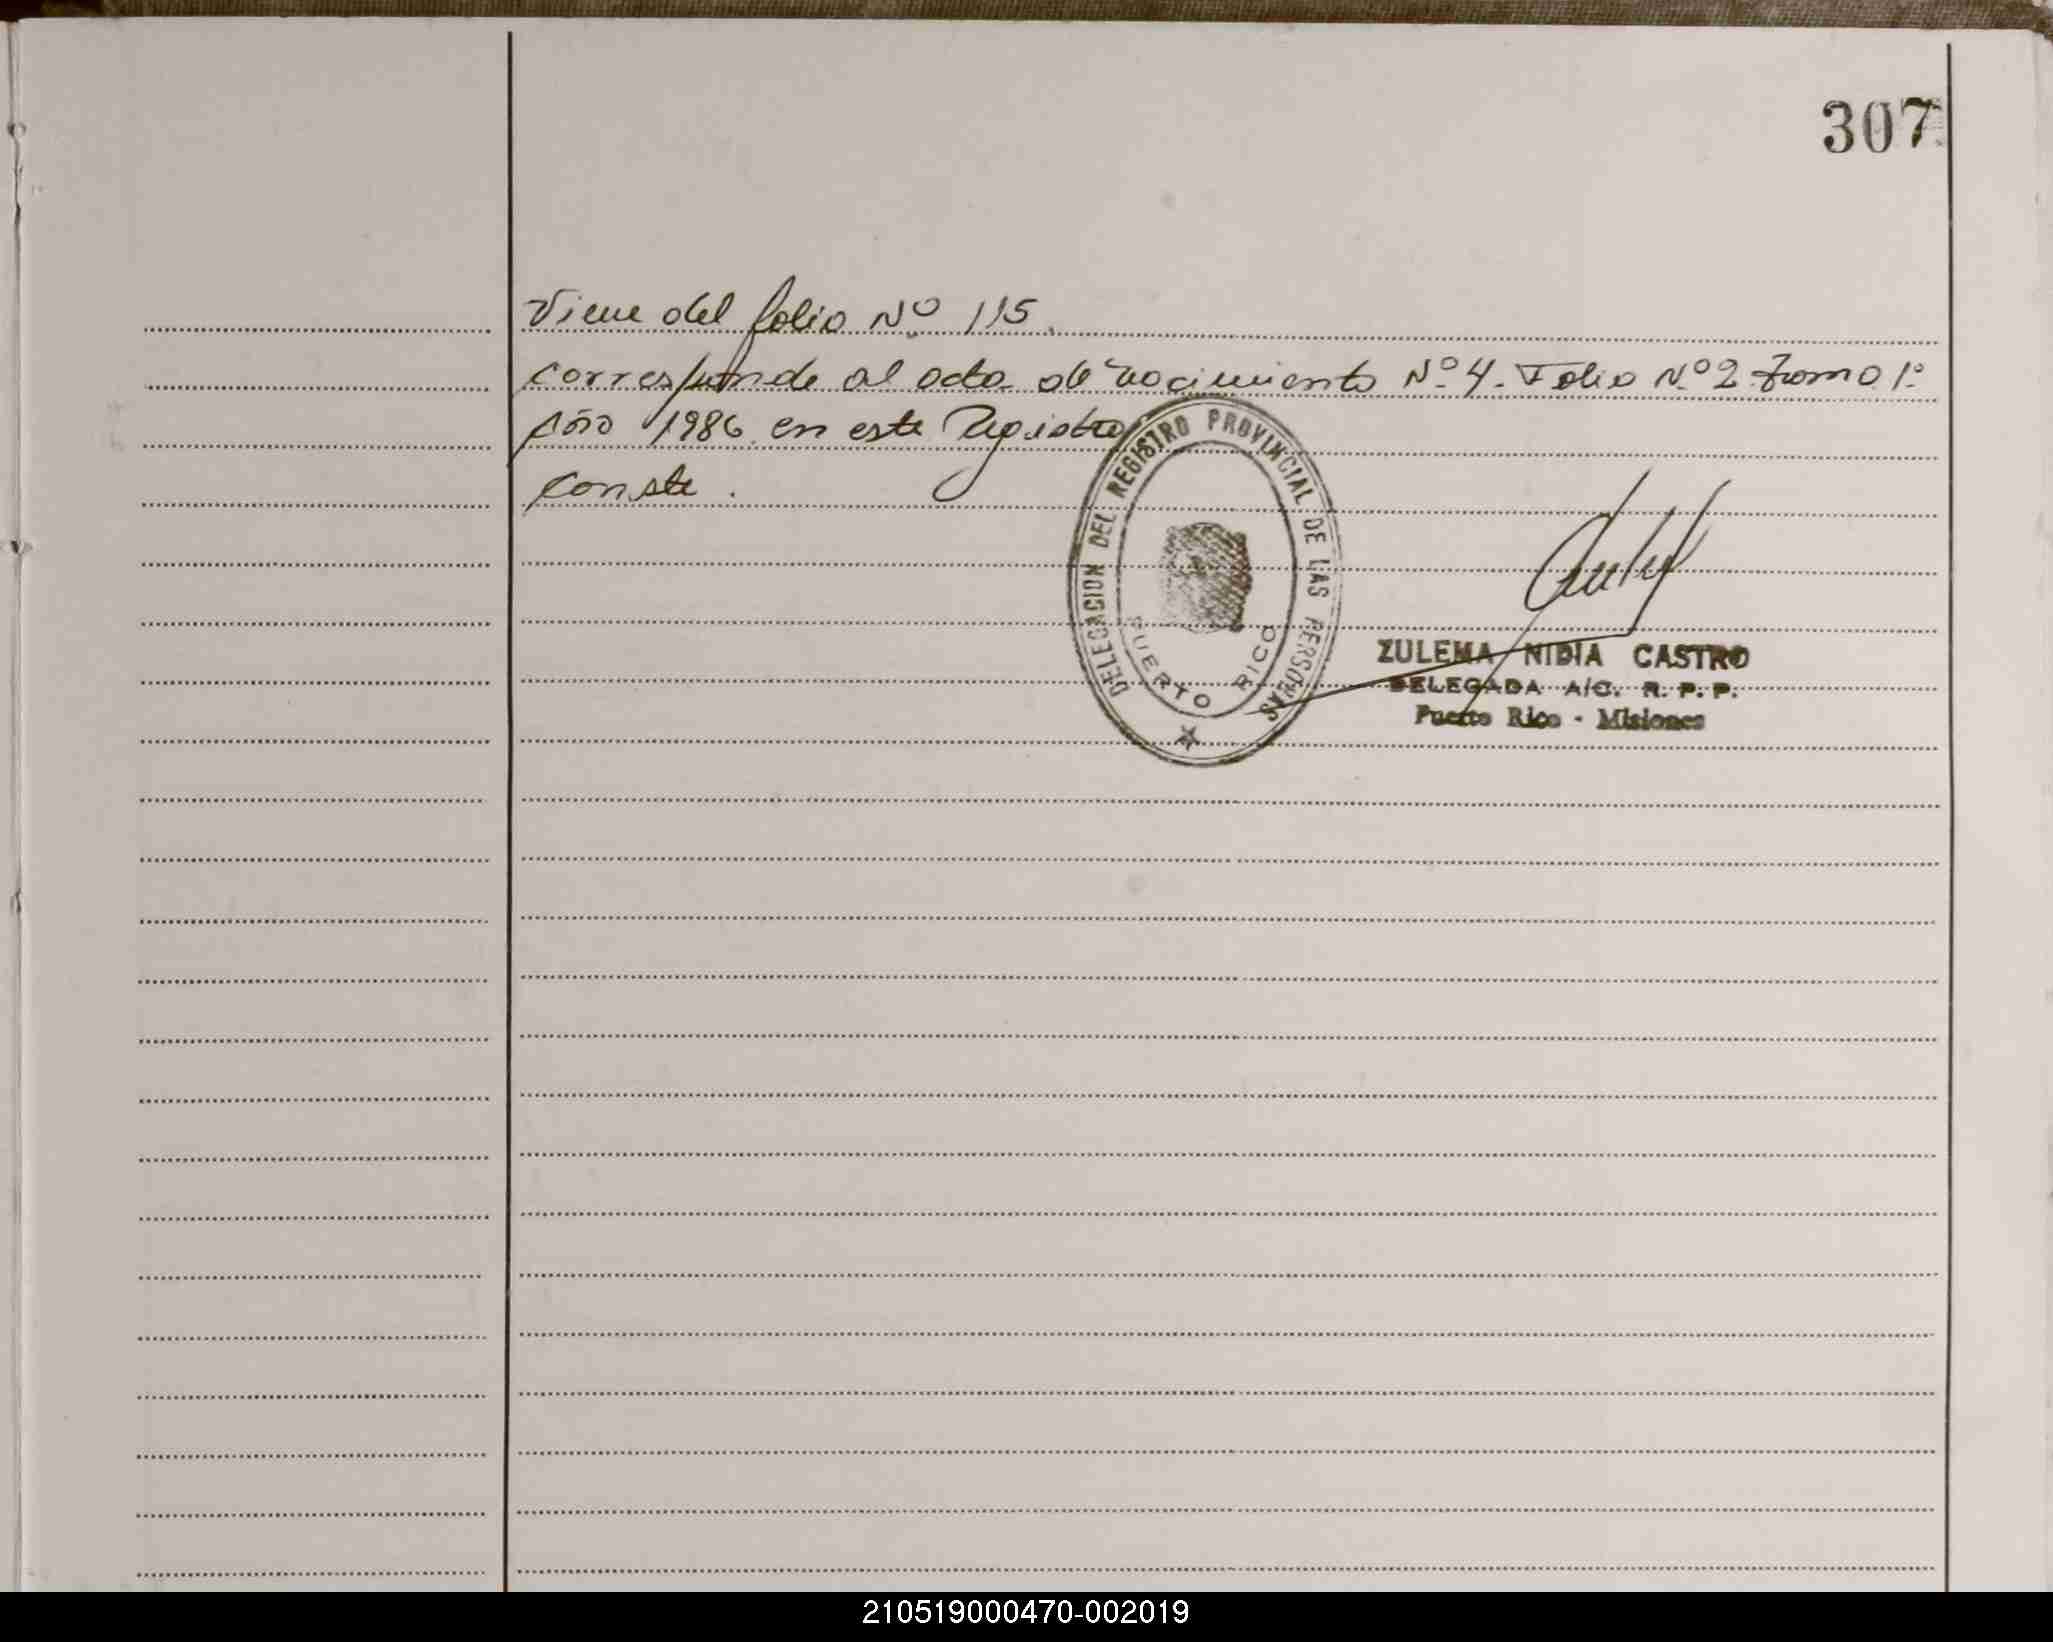 307
Viene del folio Nº 115.
Corresponde al acta de nacimiento Nº 4. Folio Nº 2 Tomo 1º
Año 1986 en este Registro
Conste.
DELEGACION DEL REGISTRO PROVINCIAL DE LAS PERSONAS
PUERTO RICO
ZULEMA NIDIA CASTRO
DELEGADA A/C. R. P. P.
Puerto Rico - Misiones
210519000470-002019